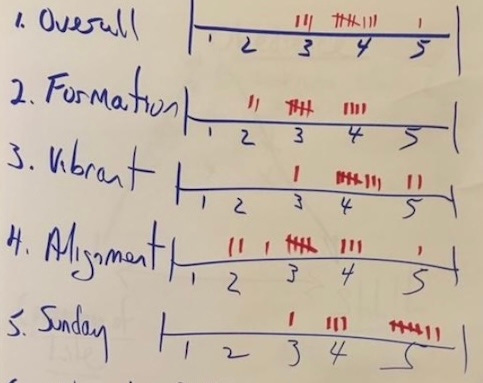 1. Overall
1 2 3 4 5
2. Formation
1 2 3 4 5
3. Vibrant
1 2 3 4 5
4. Alignment
1 2 3 4 5
5. Sunday
1 2 3 4 5